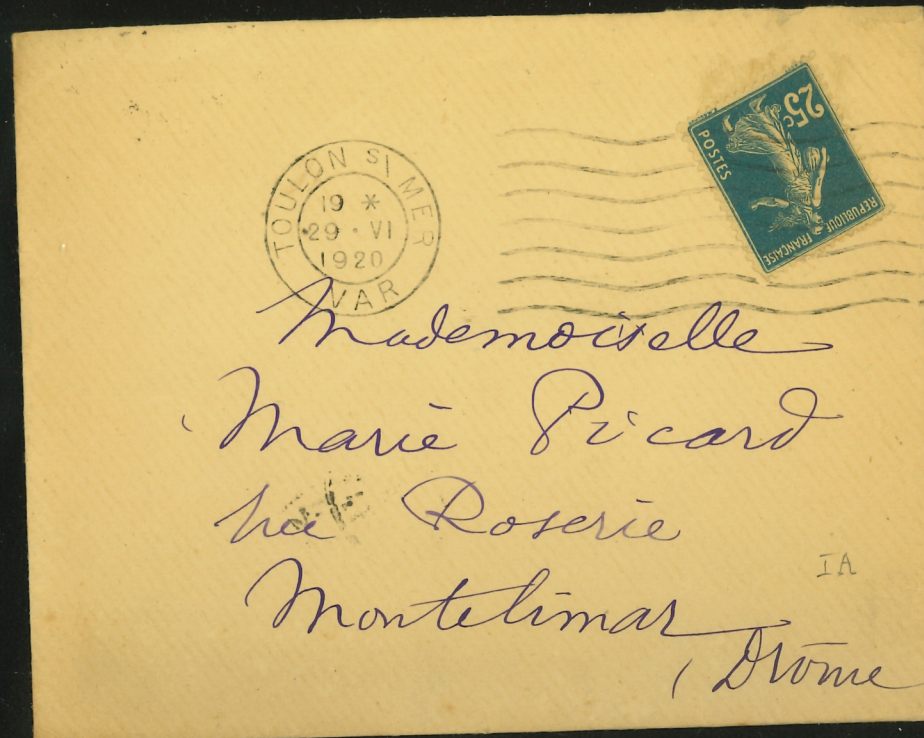 TOULON S/ MER
19 *
29 · VI
1920
VAR
25c
POSTES
REPUBLIQUE FRANÇAISE
Mademoiselle
Marie Picard
Roserie
Montelimar
(Drôme
IA